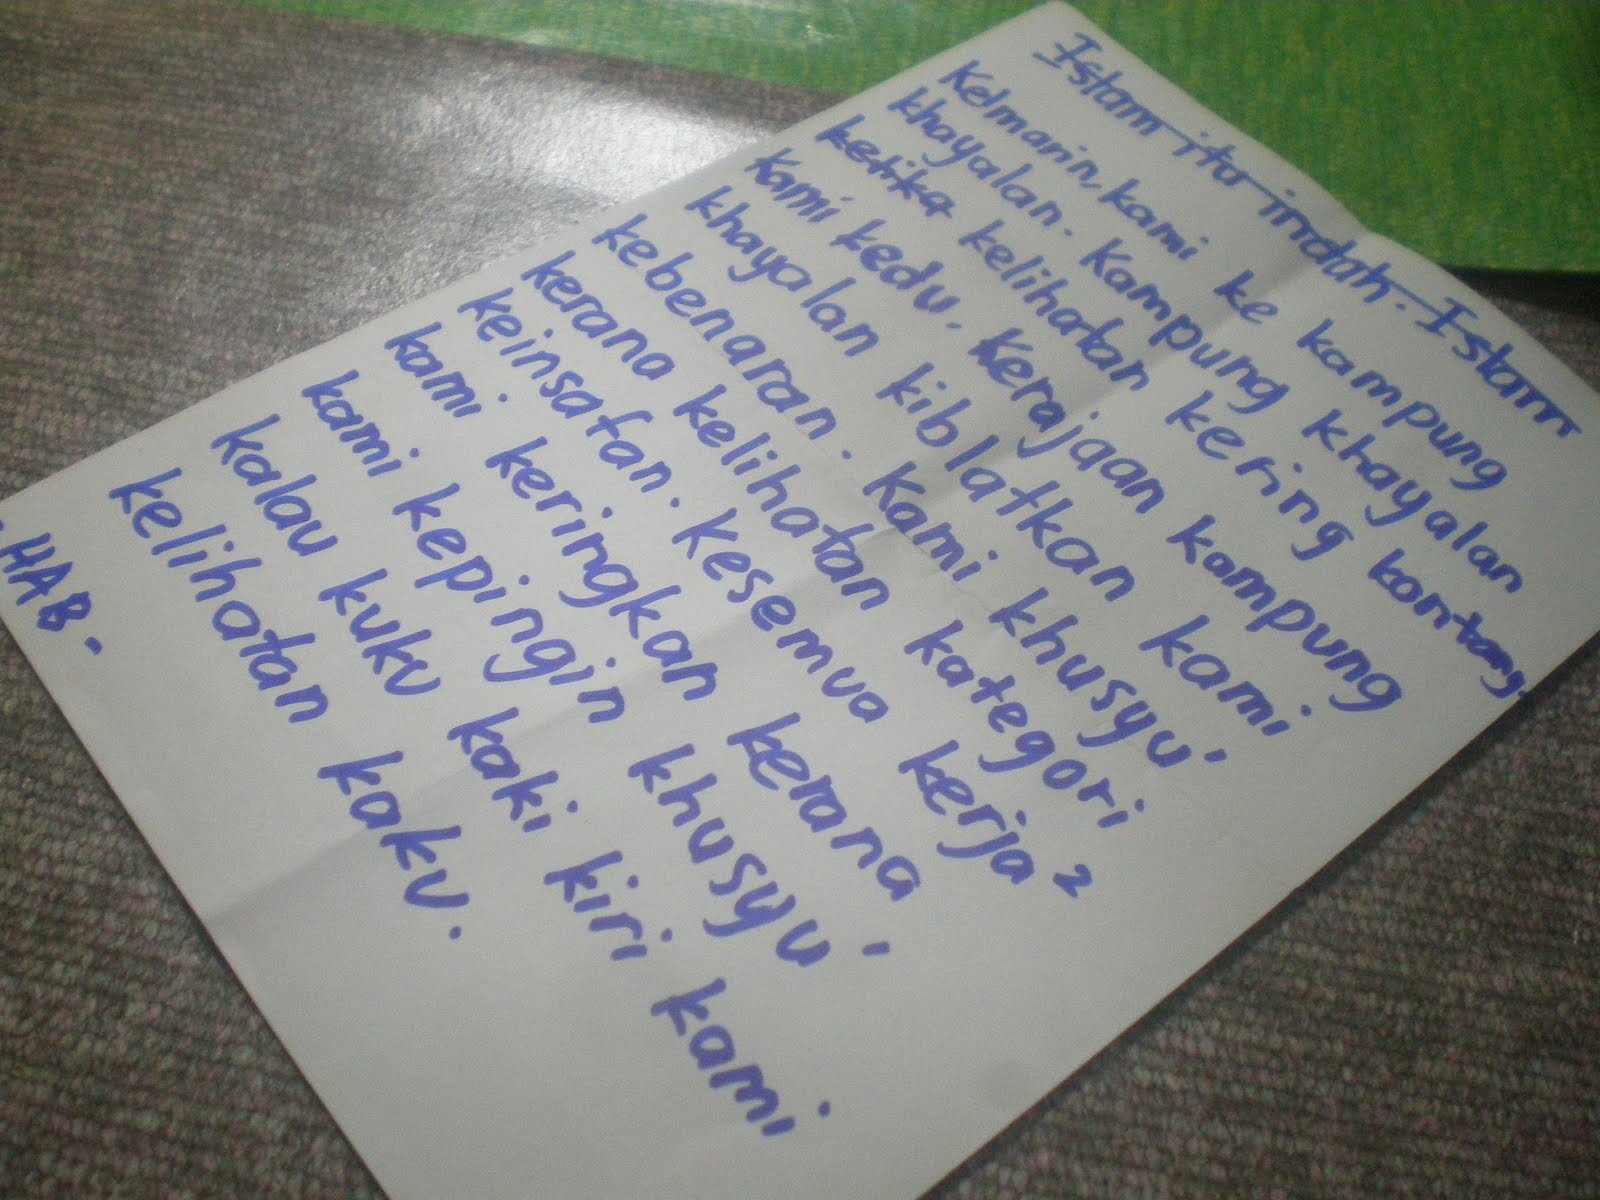 Islam itu indah. Islam
Kelmarin, kami ke kampung
khayalan. Kampung khayalan
ketika kelihatan kering kontang.
Kami kedu. Kerajaan kampung
khayalan kiblatkan kami
kebenaran. Kami khusyu'
kerana kelihatan kategori
keinsafan. Kesemua kerja2
kami keringkan kerana
kami kepingin khusyu'
kalau kuku kaki kiri kami
kelihatan kaku.
HAB.